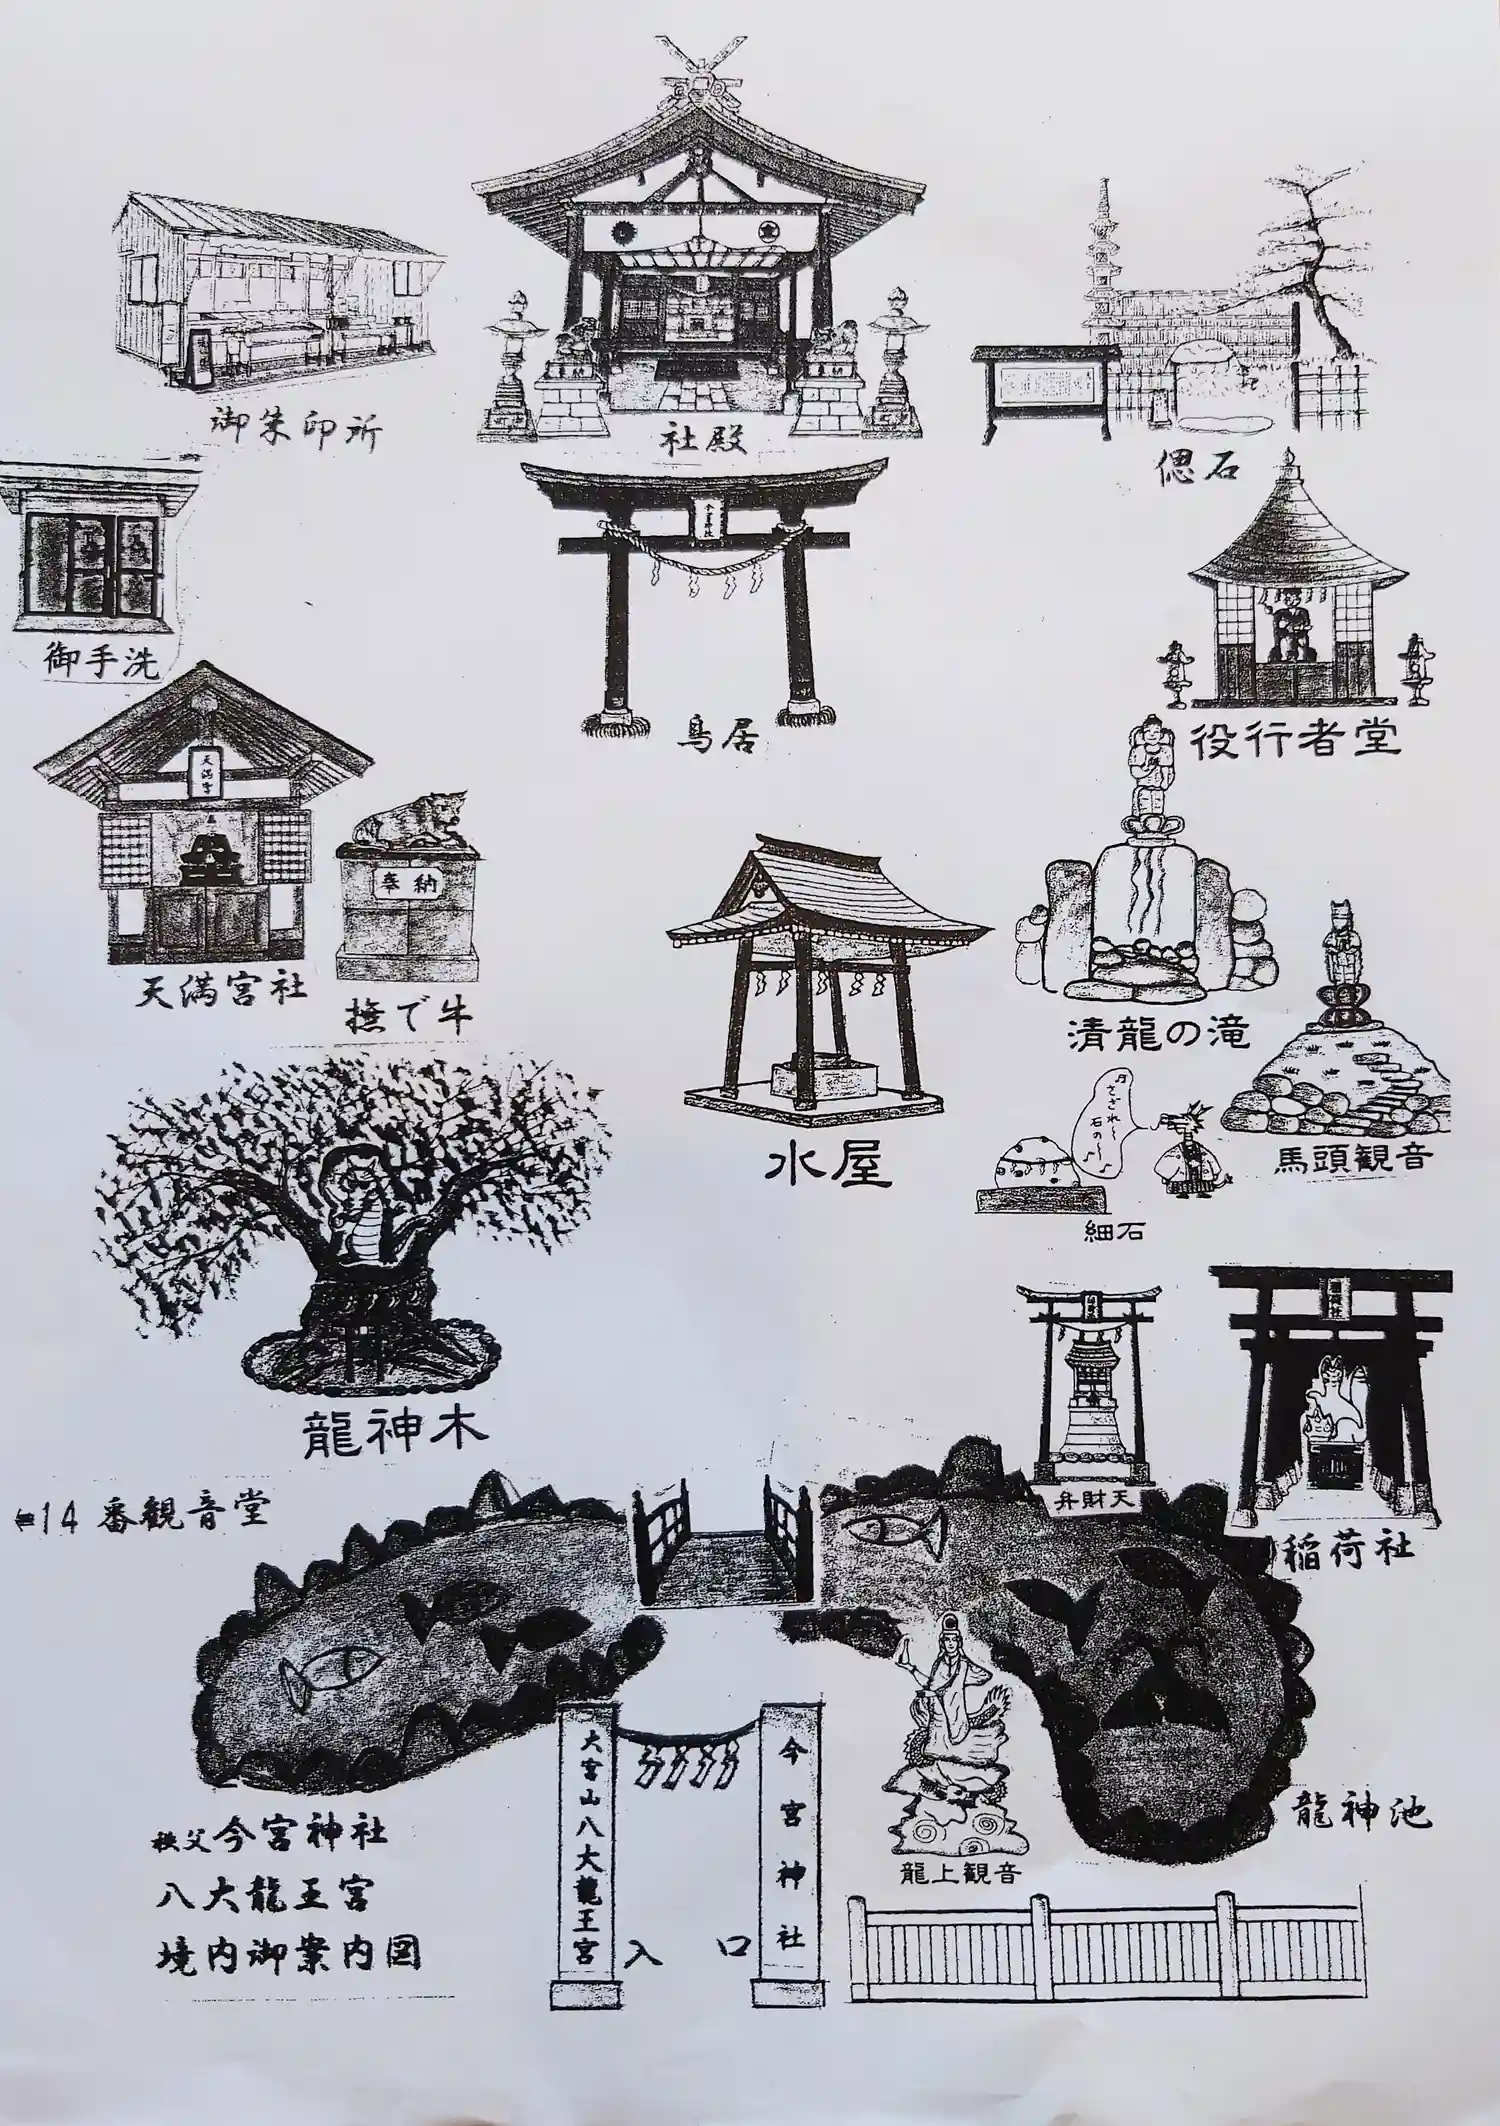 御朱印所
社殿
偲石
御手洗
今宮神社
鳥居
役行者堂
天満宮
天満宮社
奉納
撫で牛
清龍の滝
水屋
馬頭観音
さざれ〜
石の〜
細石
龍神木
弁財天
稲荷社
稲荷社
⇐14番観音堂
龍神池
龍上観音
大宮山八大龍王宮
今宮神社
入口
秩父今宮神社
八大龍王宮
境内御案内図